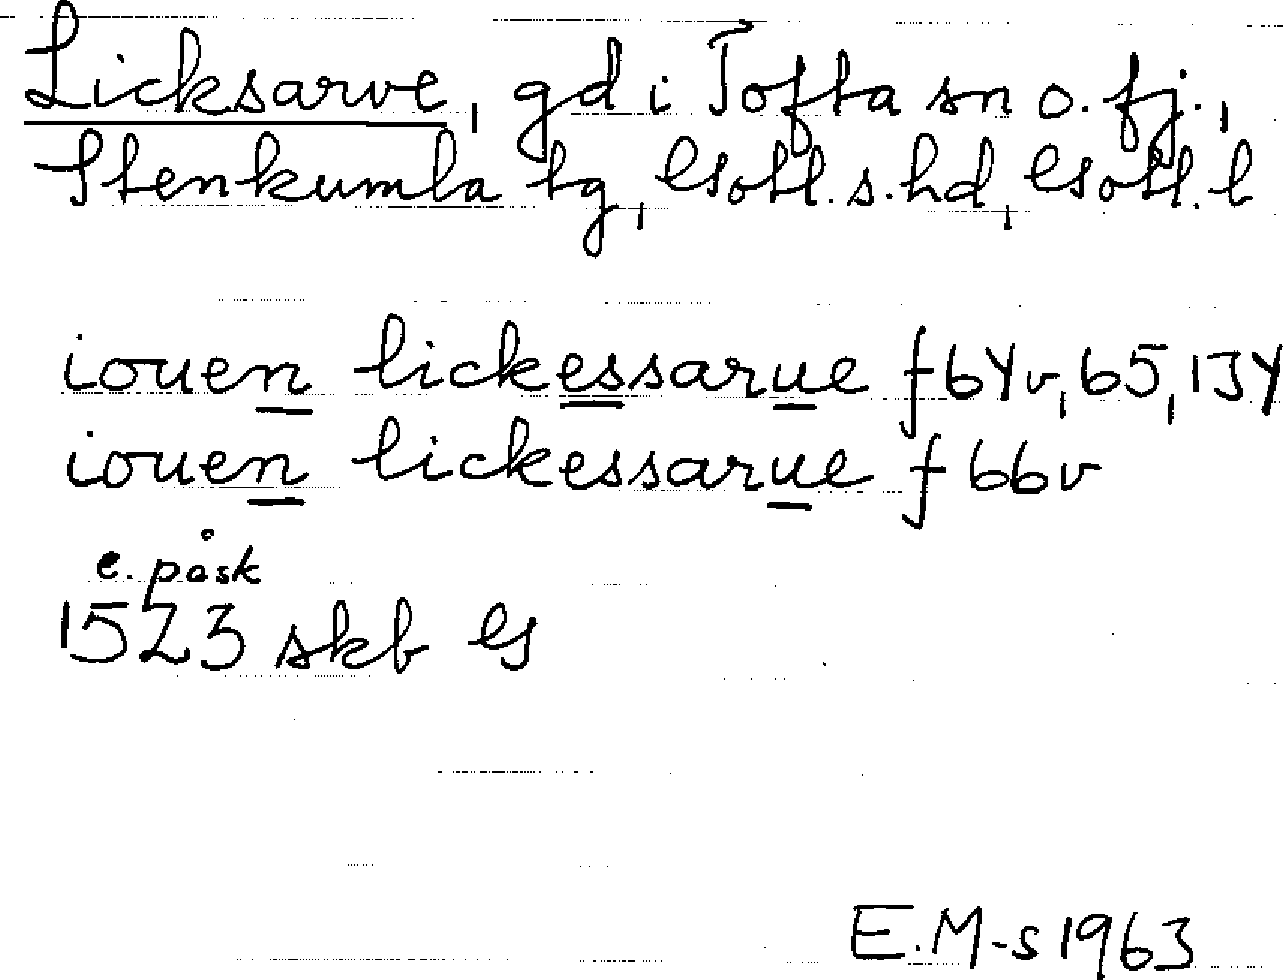 Licksarve, gd i Tofta sn o. fj.,
Stenkumla tg, Gotl. s. hd, Gotl. l
iouen lickessarue f 64v, 65, 134
iouen lickessarue f 66v
e. påsk
1523 skb G
E. M-s 1963